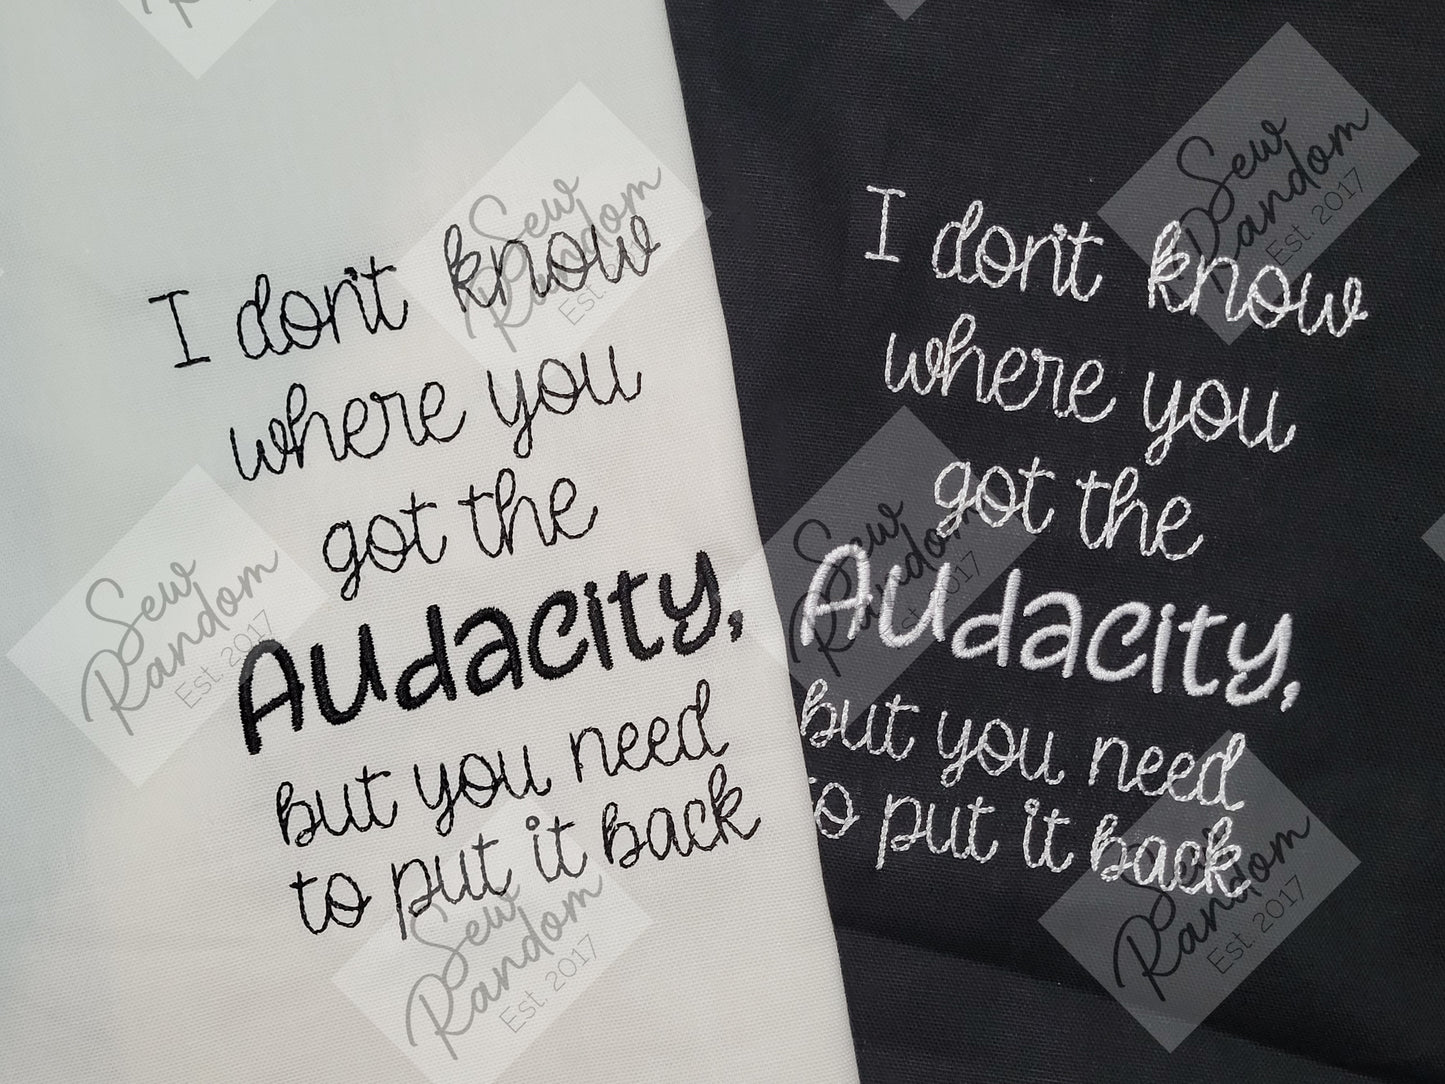 I don't know
where you
got the
Audacity,
but you need
to put it back
I don't know
where you
got the
Audacity,
but you need
to put it back
Sew
Random
Est. 2017
Sew
Random
Est. 2017
Sew
Random
Est. 2017
Sew
Random
Est. 2017
Sew
Random
Est. 2017
Sew
Random
Est. 2017